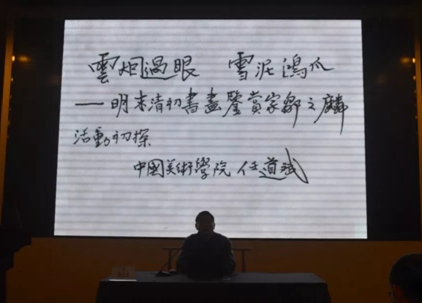 雲烟過眼 雪泥鴻爪
——明末清初書畫鑒賞家鄒之麟
活動初探
中國美術學院 任道斌